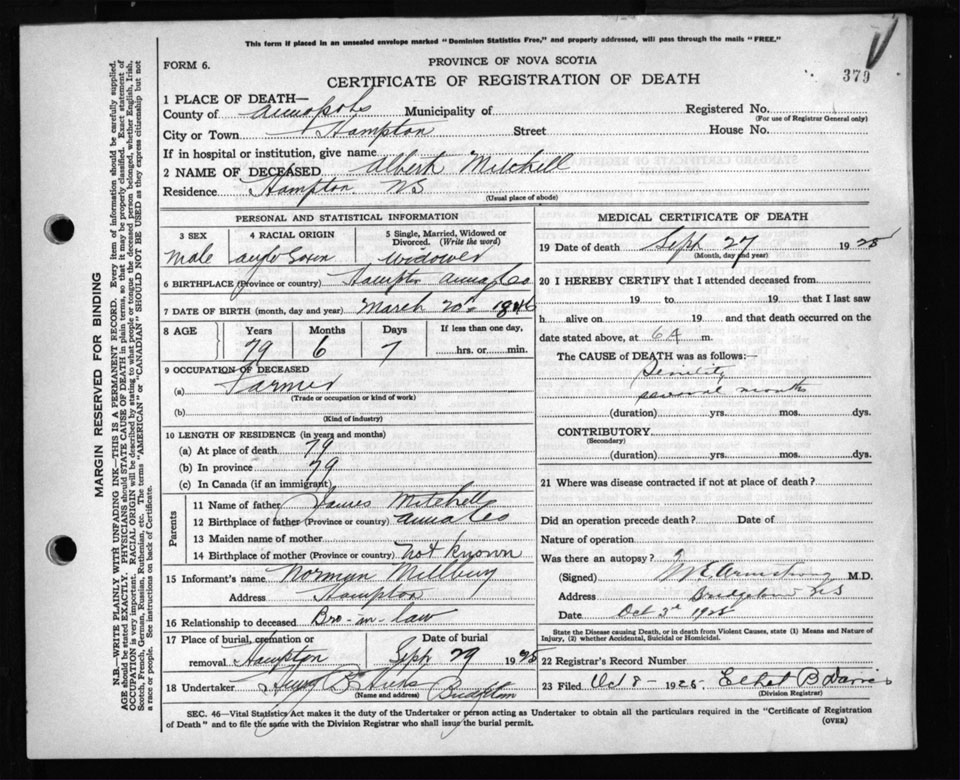 This form if placed in an unsealed envelope marked "Dominion Statistics Free," and properly addressed, will pass through the mails "FREE."
FORM 6.
PROVINCE OF NOVA SCOTIA
CERTIFICATE OF REGISTRATION OF DEATH
379
1 PLACE OF DEATH—
County of Annapolis Municipality of Registered No.
(For use of Registrar General only)
City or Town Hampton Street House No.
If in hospital or institution, give name
2 NAME OF DECEASED Albert Mitchell
Residence Hampton NS
(Usual place of abode)
PERSONAL AND STATISTICAL INFORMATION
3 SEX 4 RACIAL ORIGIN 5 Single, Married, Widowed or Divorced. (Write the word)
male widower
6 BIRTHPLACE (Province or country) Hampton Annap Co
7 DATE OF BIRTH (month, day and year) March 20 1846
8 AGE Years Months Days If less than one day,
79 6 7 hrs. or min.
9 OCCUPATION OF DECEASED
(a) Farmer
(Trade or occupation or kind of work)
(b)
(Kind of industry)
10 LENGTH OF RESIDENCE (in years and months)
(a) At place of death 79
(b) In province 79
(c) In Canada (if an immigrant)
Parents
11 Name of father James Mitchell
12 Birthplace of father (Province or country) Anna Co
13 Maiden name of mother
14 Birthplace of mother (Province or country) not known
15 Informant's name Norman Millbury
Address Hampton
16 Relationship to deceased Bro-in-law
17 Place of burial, cremation or Date of burial
removal Hampton Sept 29 1925
18 Undertaker Hicks
(Name and address)
MEDICAL CERTIFICATE OF DEATH
19 Date of death Sept 27 1925
(Month, day and year)
20 I HEREBY CERTIFY that I attended deceased from
19 to 19 that I last saw
h alive on 19 and that death occurred on the
date stated above, at 6 A m.
The CAUSE of DEATH was as follows:—
Senility
several months
(duration) yrs. mos. dys.
CONTRIBUTORY
(Secondary)
(duration) yrs. mos. dys.
21 Where was disease contracted if not at place of death?
Did an operation precede death? Date of
Nature of operation
Was there an autopsy?
(Signed) Armstrong M.D.
Address Bridgetown NS
Date Oct 3d 1925
State the Disease causing Death, or in death from Violent Causes, state (1) Means and Nature of
Injury, (2) whether Accidental, Suicidal or Homicidal.
22 Registrar's Record Number
23 Filed Oct 8 - 1925 Ethel B
(Division Registrar)
SEC. 46—Vital Statistics Act makes it the duty of the Undertaker or person acting as Undertaker to obtain all the particulars required in the "Certificate of Registration
of Death" and to file the same with the Division Registrar who shall issue the burial permit.
(OVER)
MARGIN RESERVED FOR BINDING
N.B.—WRITE PLAINLY WITH UNFADING INK—THIS IS A PERMANENT RECORD. Every item of information should be carefully supplied.
AGE should be stated EXACTLY. PHYSICIANS should STATE CAUSE OF DEATH in plain terms, so that it may be properly classified. Exact statement of
OCCUPATION is very important. RACIAL ORIGIN will be described by stating to what people or tongue the deceased person belonged, whether English, Irish,
Scotch, French, German, Russian, Ruthenian, etc. The terms "AMERICAN" or "CANADIAN" SHOULD NOT BE USED as they express citizenship but not
a race or people. See instructions on back of Certificate.